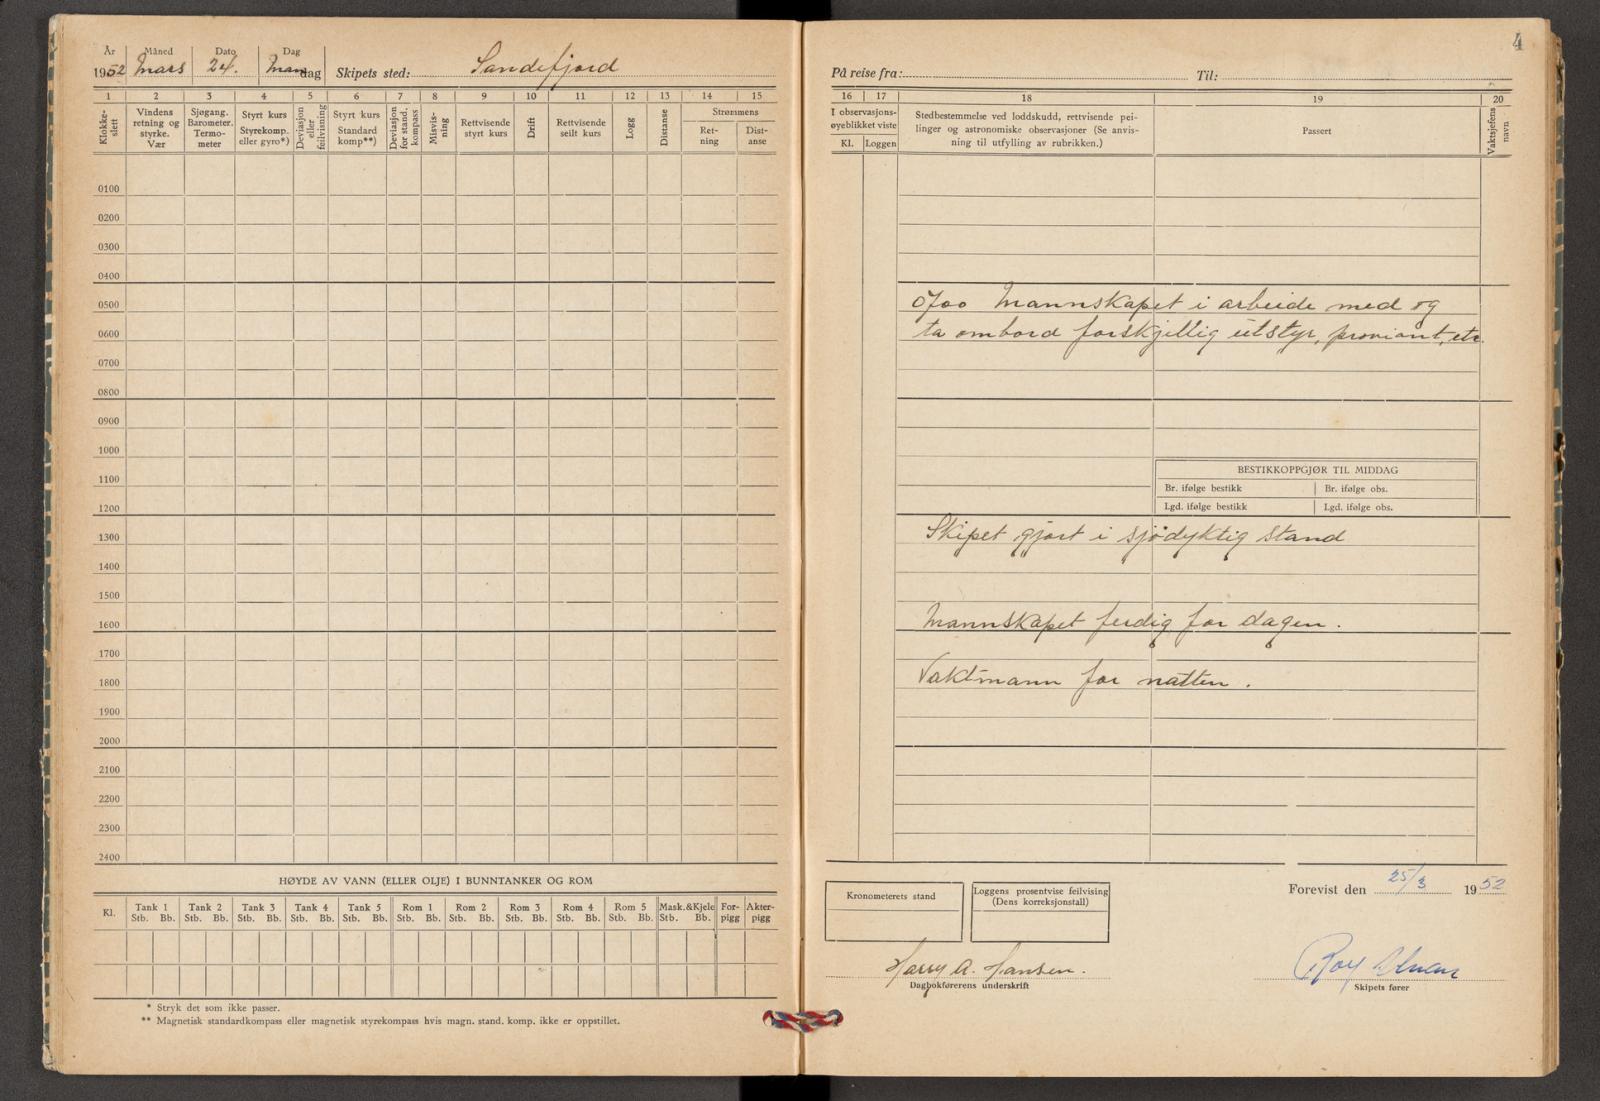 4
År Måned Dato Dag
1952 Mars 24. Mandag Skipets sted: Sandefjord
1 2 3 4 5 6 7 8 9 10 11 12 13 14 15
Klokke-
slett
Vindens
retning og
styrke.
Vær
Sjøgang.
Barometer.
Termo-
meter
Styrt kurs
Styrekomp.
eller gyro*)
Deviasjon
eller
feilvisning
Styrt kurs
Standard
komp**)
Deviasjon
for stand.
kompass
Misvis-
ning
Rettvisende
styrt kurs
Drift
Rettvisende
seilt kurs
Logg
Distanse
Strømmens
Ret-
ning
Dist-
anse
0100
0200
0300
0400
0500
0600
0700
0800
0900
1000
1100
1200
1300
1400
1500
1600
1700
1800
1900
2000
2100
2200
2300
2400
HØYDE AV VANN (ELLER OLJE) I BUNNTANKER OG ROM
Kl. Tank 1 Tank 2 Tank 3 Tank 4 Tank 5 Rom 1 Rom 2 Rom 3 Rom 4 Rom 5 Mask.&Kjele For- Akter-
Stb. Bb. Stb. Bb. Stb. Bb. Stb. Bb. Stb. Bb. Stb. Bb. Stb. Bb. Stb. Bb. Stb. Bb. Stb. Bb. Stb. Bb. pigg pigg
* Stryk det som ikke passer.
** Magnetisk standardkompass eller magnetisk styrekompass hvis magn. stand. komp. ikke er oppstillet.
På reise fra: Til:
16 17 18 19 20
I observasjons-
øyeblikket viste
Kl. Loggen
Stedbestemmelse ved loddskudd, rettvisende pei-
linger og astronomiske observasjoner (Se anvis-
ning til utfylling av rubrikken.)
Passert
Vaktsjefens
navn
0700 Mannskapet i arbeide med og
ta ombord forskjellig utstyr, proviant, etc.
BESTIKKOPPGJØR TIL MIDDAG
Br. ifølge bestikk Br. ifølge obs.
Lgd. ifølge bestikk Lgd. ifølge obs.
Skipet gjort i sjødyktig stand
Mannskapet ferdig for dagen.
Vaktmann for natten.
Kronometerets stand
Loggens prosentvise feilvising
(Dens korreksjonstall)
Forevist den 25/3 1952
Harry A. Hansen.
Dagbokførerens underskrift
Skipets fører